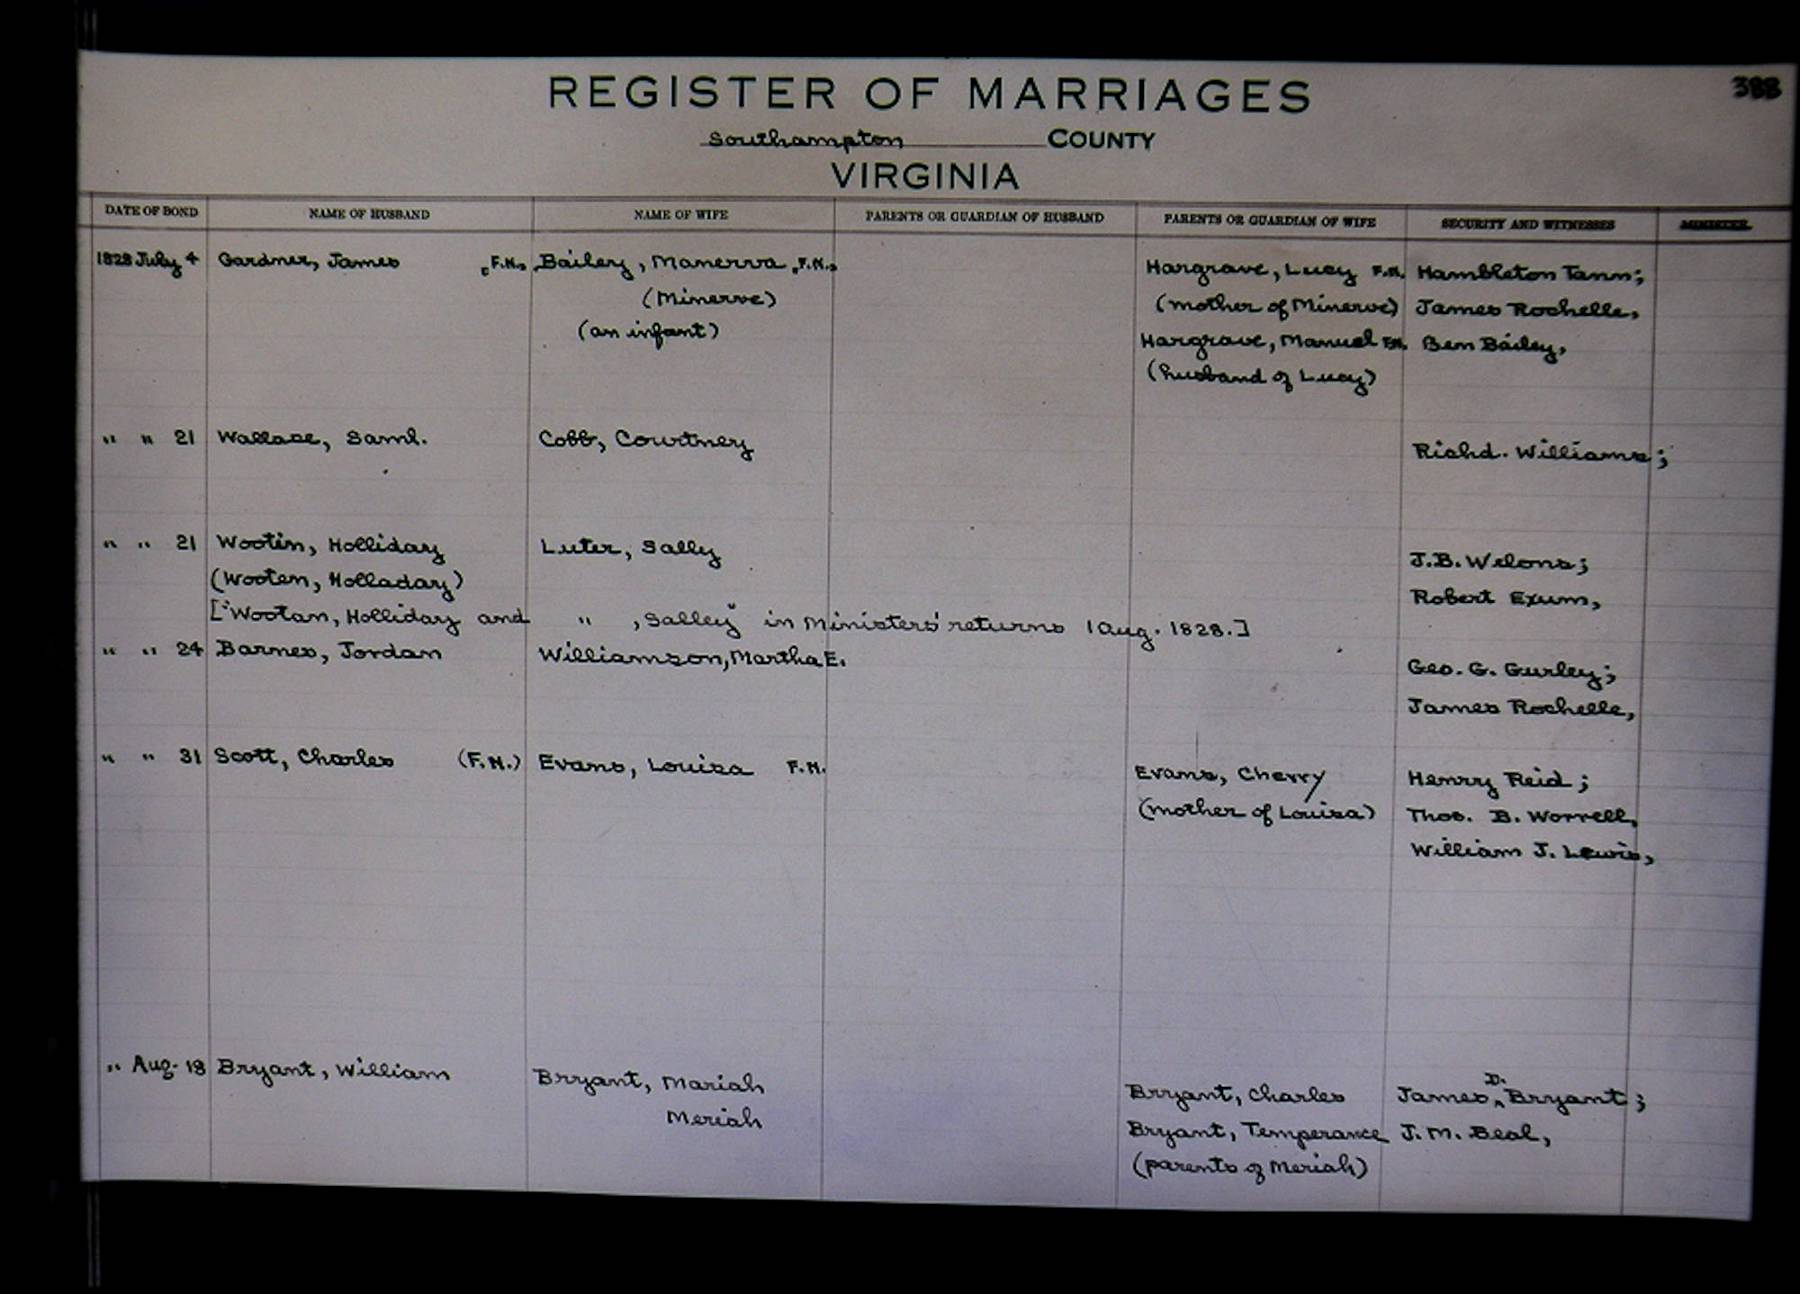 388
REGISTER OF MARRIAGES
Southampton COUNTY
VIRGINIA
DATE OF BOND NAME OF HUSBAND NAME OF WIFE PARENTS OR GUARDIAN OF HUSBAND PARENTS OR GUARDIAN OF WIFE SECURITY AND WITNESSES MINISTER
1828 July 4 Gardner, James (F.N.) Bailey, Manerva (F.N.) Hargrave, Lucy F.N. Hambleton Tann;
(Minerve) (mother of Minerve) James Rochelle,
(an infant) Hargrave, Manuel F.N. Ben Bailey,
(husband of Lucy)
" " 21 Wallace, Saml. Cobb, Courtney Richd. Williams;
" " 21 Wootin, Holliday Luter, Sally J.B. Welons;
(Wooten, Holladay) Robert Exum,
["Wootan, Holliday and " , Salley" in Ministers' returns 1 Aug. 1828.]
" " 24 Barnes, Jordan Williamson, Martha E. Geo. G. Gurley;
James Rochelle,
" " 31 Scott, Charles (F.N.) Evans, Louiza F.N. Evans, Cherry Henry Reid;
(mother of Louiza) Thos. B. Worrell,
William J. Lewis,
" Aug. 18 Bryant, William Bryant, Mariah Bryant, Charles James D. Bryant;
Meriah Bryant, Temperance J. M. Beal,
(parents of Meriah)